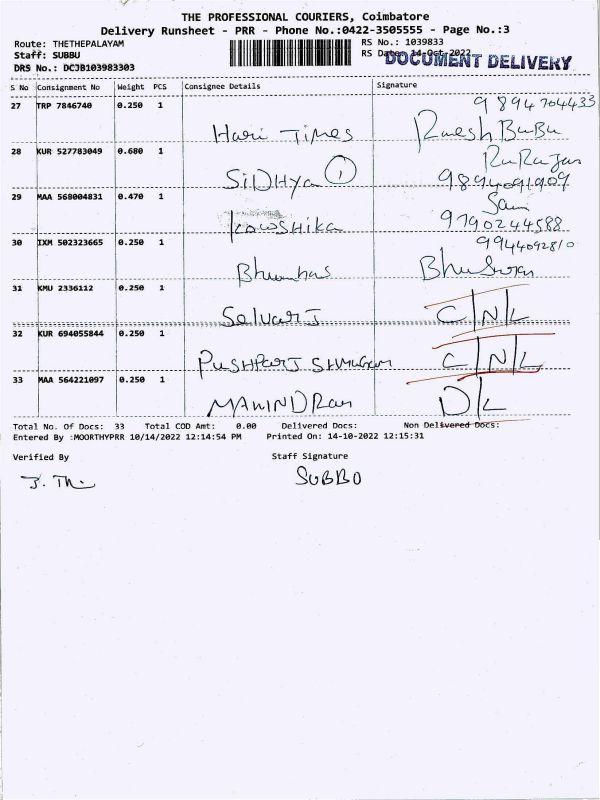 THE PROFESSIONAL COURIERS, Coimbatore
Delivery Runsheet - PRR - Phone No.:0422-3505555 - Page No.:3
Route: THETHEPALAYAM RS No.: 1039833
Staff: SUBBU RS Date: 14-Oct-2022
DOCUMENT DELIVERY
DRS No.: DCJB103983303
S No Consignment No Weight PCS Consignee Details Signature
27 TRP 7846740 0.250 1 9894704433
Hari Times
28 KUR 527783049 0.680 1
SiDHya 1 9894091909
29 MAA 568004831 0.470 1
KowSHika 9790244588
30 IXM 502323665 0.250 1 9944092810
31 KMU 2336112 0.250 1
SelvarJ C/N/L
32 KUR 694055844 0.250 1
C/N/L
33 MAA 564221097 0.250 1
D/L
Total No. Of Docs: 33 Total COD Amt: 0.00 Delivered Docs: Non Delivered Docs:
Entered By :MOORTHYPRR 10/14/2022 12:14:54 PM Printed On: 14-10-2022 12:15:31
Verified By Staff Signature
SUBBO